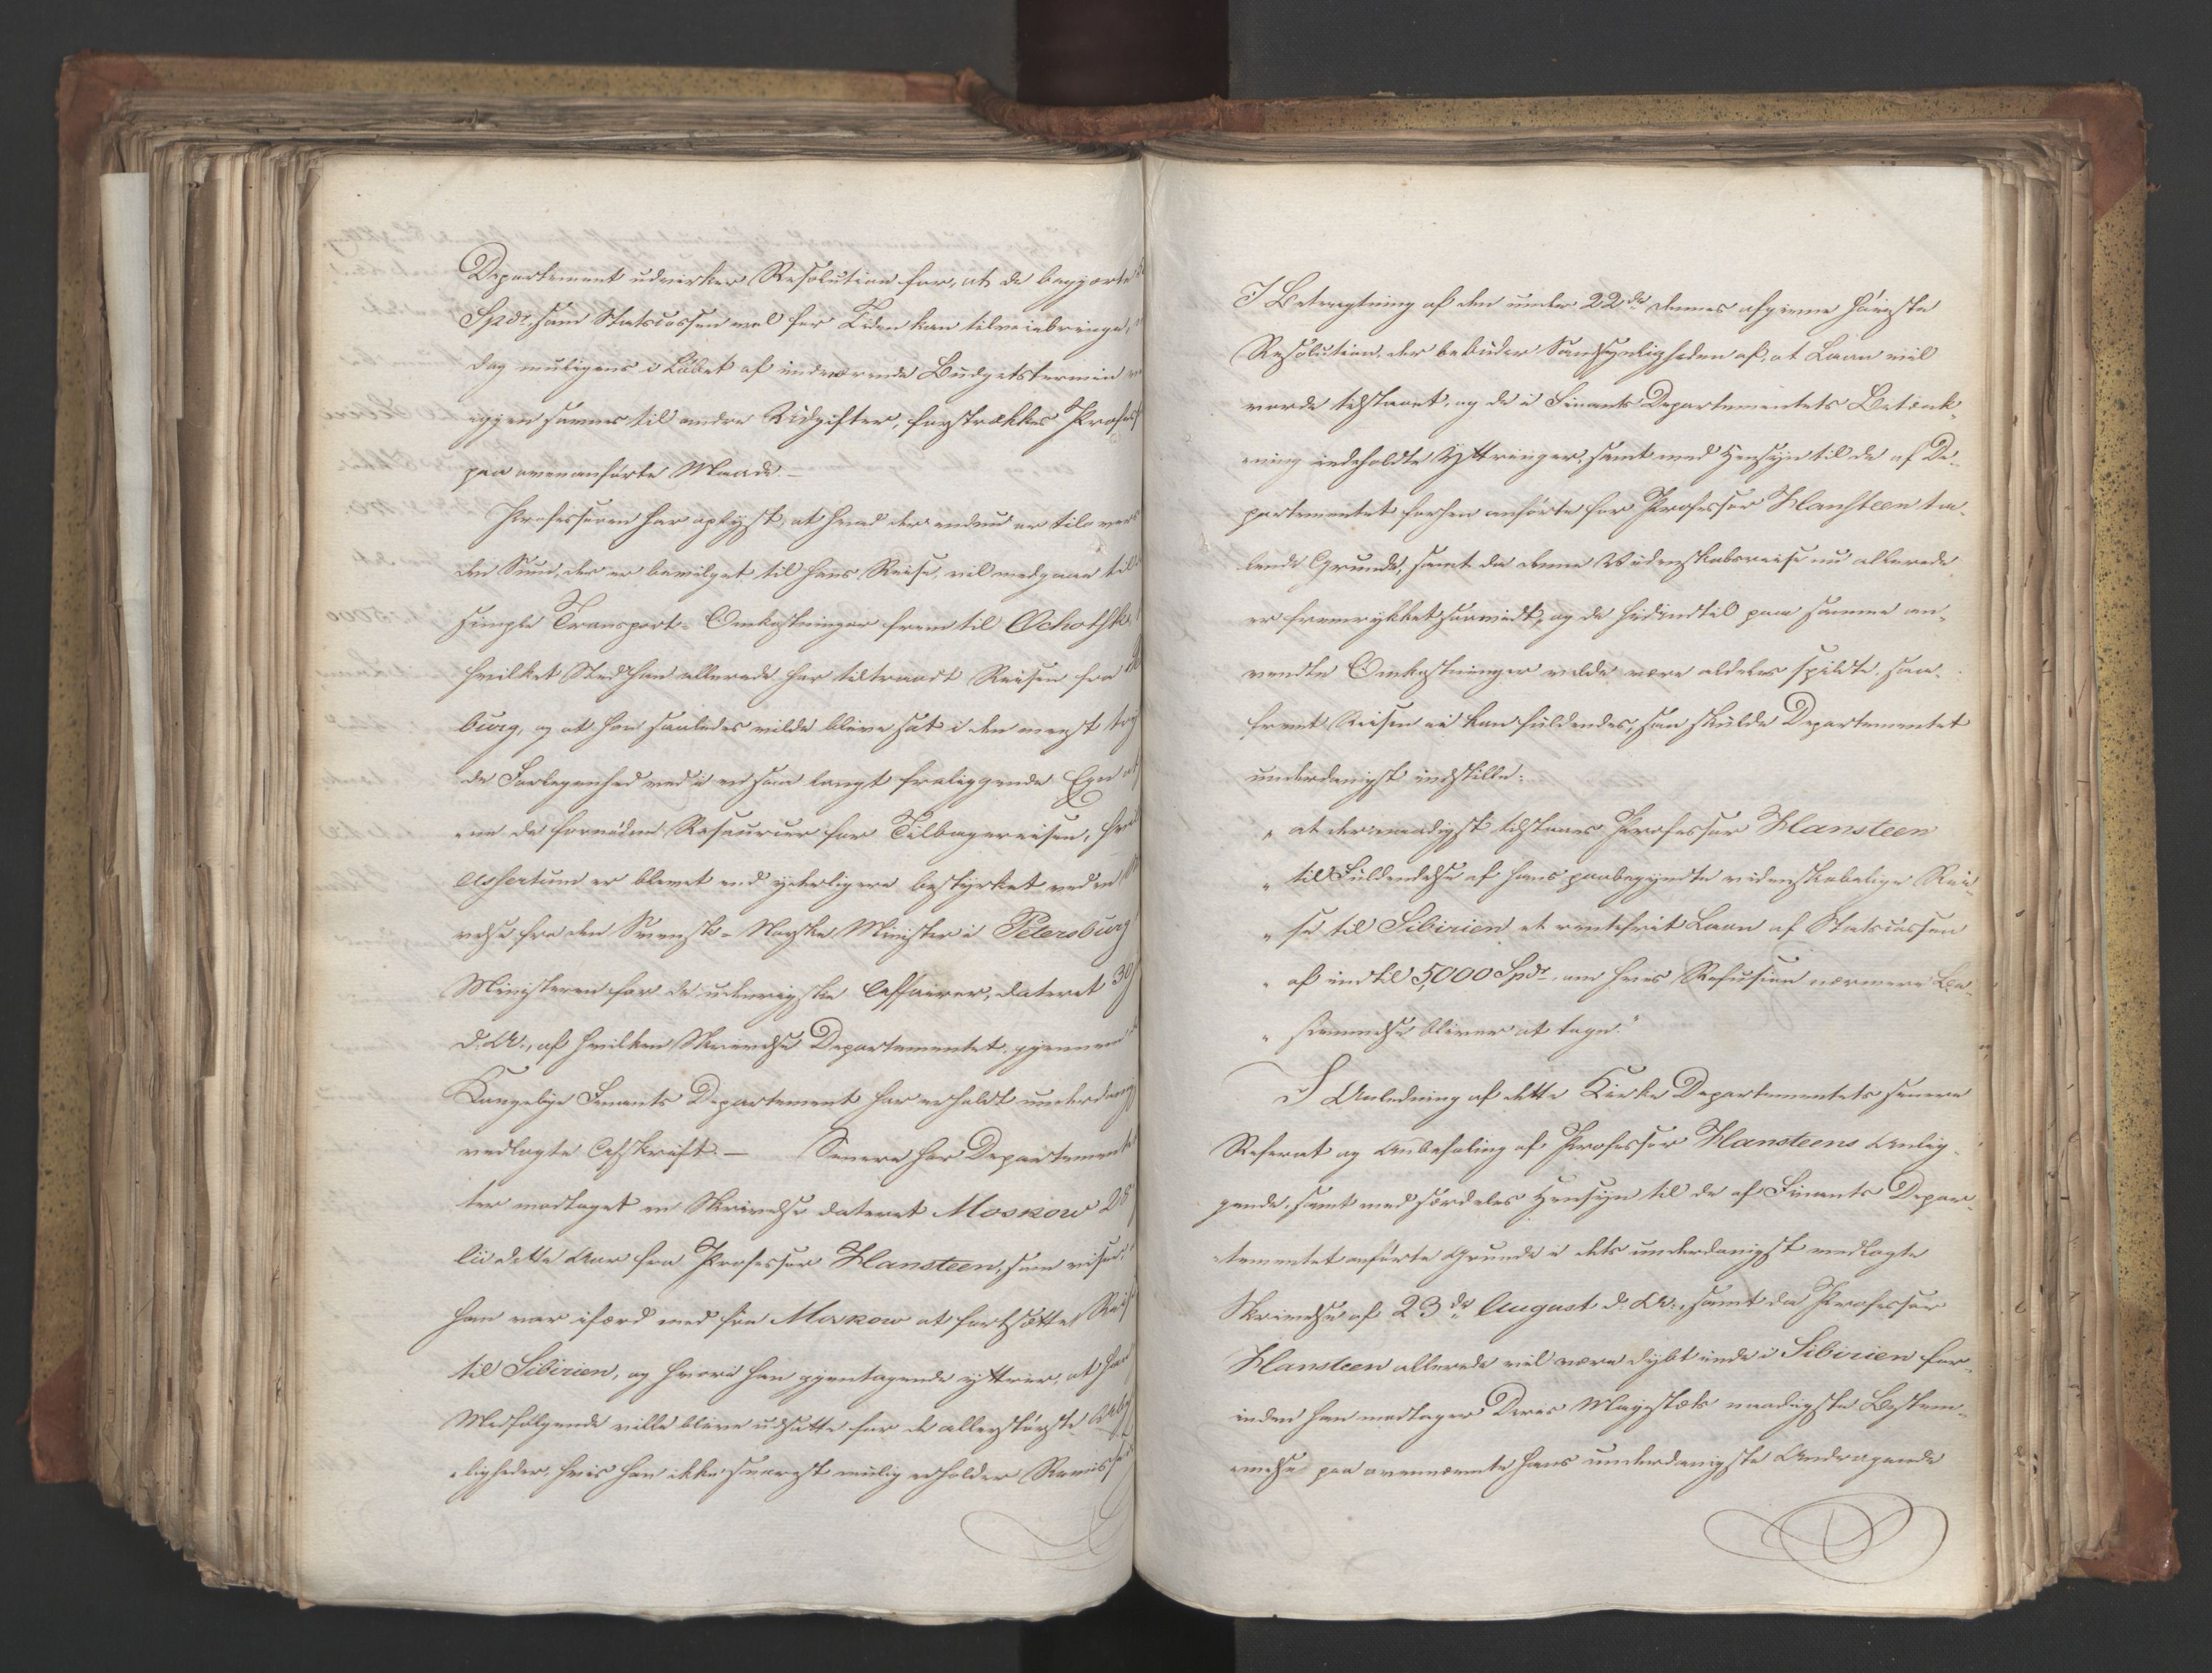 Departement udvirker Resolution for, at de begjærte
Spdr, som Statscassen vel for Tiden kan tilveiebringe,
dog muligens i Løbet af indeværende Budgetstermin
igjen savnes til andre Udgifter, forstrækkes Profess
paa ovenanførte Maade. –
Professoren har oplyst, at hvad der endnu er tilovers
den Sum, der er bevilget til hans Reise, vil medgaae til
simple Transport-Omkostninger frem til Ochotsk,
hvilket Sted han allerede har tiltraadt Reisen fra
burg, og at han saaledes vilde blive sat i den meest
de Forlegenhed ved i en saa langt fraliggende Egn
de fornødne Resourcer for Tilbagereisen, hvil
assertum er blevet end yderligere bestyrket ved en
velse fra den Svensk-Norske Minister i Petersburg
Ministeren for de udenrigske Affairer, dateret 30
d. A., af hvilken Skrivelse Departementet gjennem
Kongelige Finants Departement har erholdt underdanig
vedlagte Afskrift. – Senere har Departemente
ter modtaget en Skrivelse dateret Moskow 28
lii dette Aar fra Professor Hansteen, som viser,
han var ifærd med fra Moskow at fortsætte Reis
til Sibirien, og hvori han gjentagende yttrer, at han
Medfølgende ville blive udsatte for de allerstørste
ligheder, hvis han ikke snarest mulig erholder Remis
I Betragtning af den under 22de dennes afgivne høieste
Resolution, der bebuder Sandsynligheden af, at Laan vil
vorde tilstaaet, og de i Finants Departementets Betænk-
ning indeholdte Yttringer, samt med Hensyn til de af De-
partementet forhen anførte for Professor Hansteen ta-
lende Grunde, samt da denne Videnskabsreise nu allerede
er fremrykket saavidt, og de hidindtil paa samme an-
vendte Omkostninger vilde være aldeles spildte, saa-
fremt Reisen ei kan fuldendes, saa skulde Departementet
underdanigst indstille:
" at der naadigst tilstaaes Professor Hansteen
" til Fuldendelse af hans paabegyndte videnskabelige Rei-
" se til Sibirien et rentefrit Laan af Statscassen
" af indtil 5,000 Spdr, om hvis Refusion nærmere Be-
" stemmelse bliver at tage."
I Anledning af dette Kirke Departementets senere
Referat og Anbefaling af Professor Hansteens Anlig-
gende, samt med særdeles Hensyn til de af Finants Depar-
tementet anførte Grunde i dets underdanigst vedlagte
Skrivelse af 23de August d. A., samt da Professor
Hansteen allerede vil være dybt inde i Sibirien for-
inden han modtager Deres Majestæts naadigste Bestem-
melse paa ovennævnte hans underdanigste Andragende